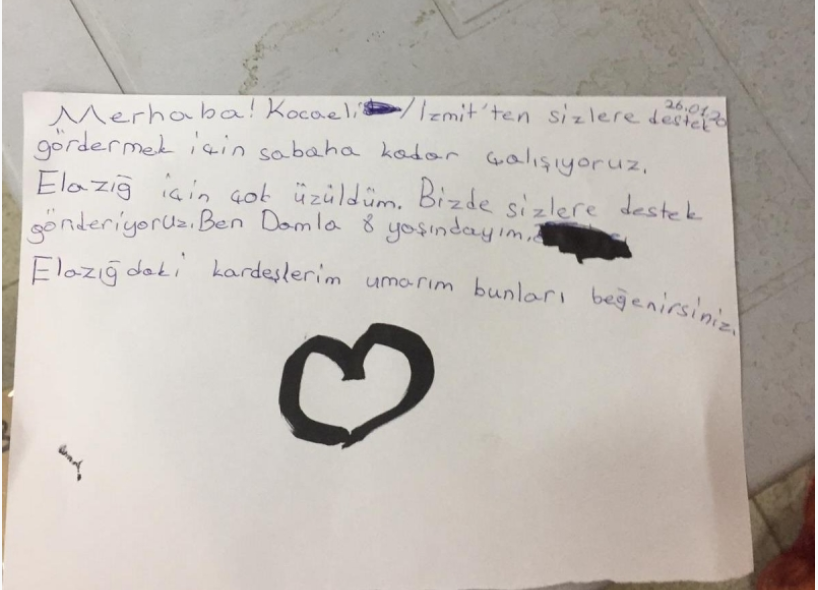 26.01.20
Merhaba! Kocaeli /İzmit'ten sizlere destek
gördermek için sabaha kadar çalışıyoruz.
Elazığ için çok üzüldüm. Bizde sizlere destek
gönderiyoruz. Ben Damla 8 yaşındayım.
Elazığdaki kardeşlerim umarım bunları beğenirsiniz.